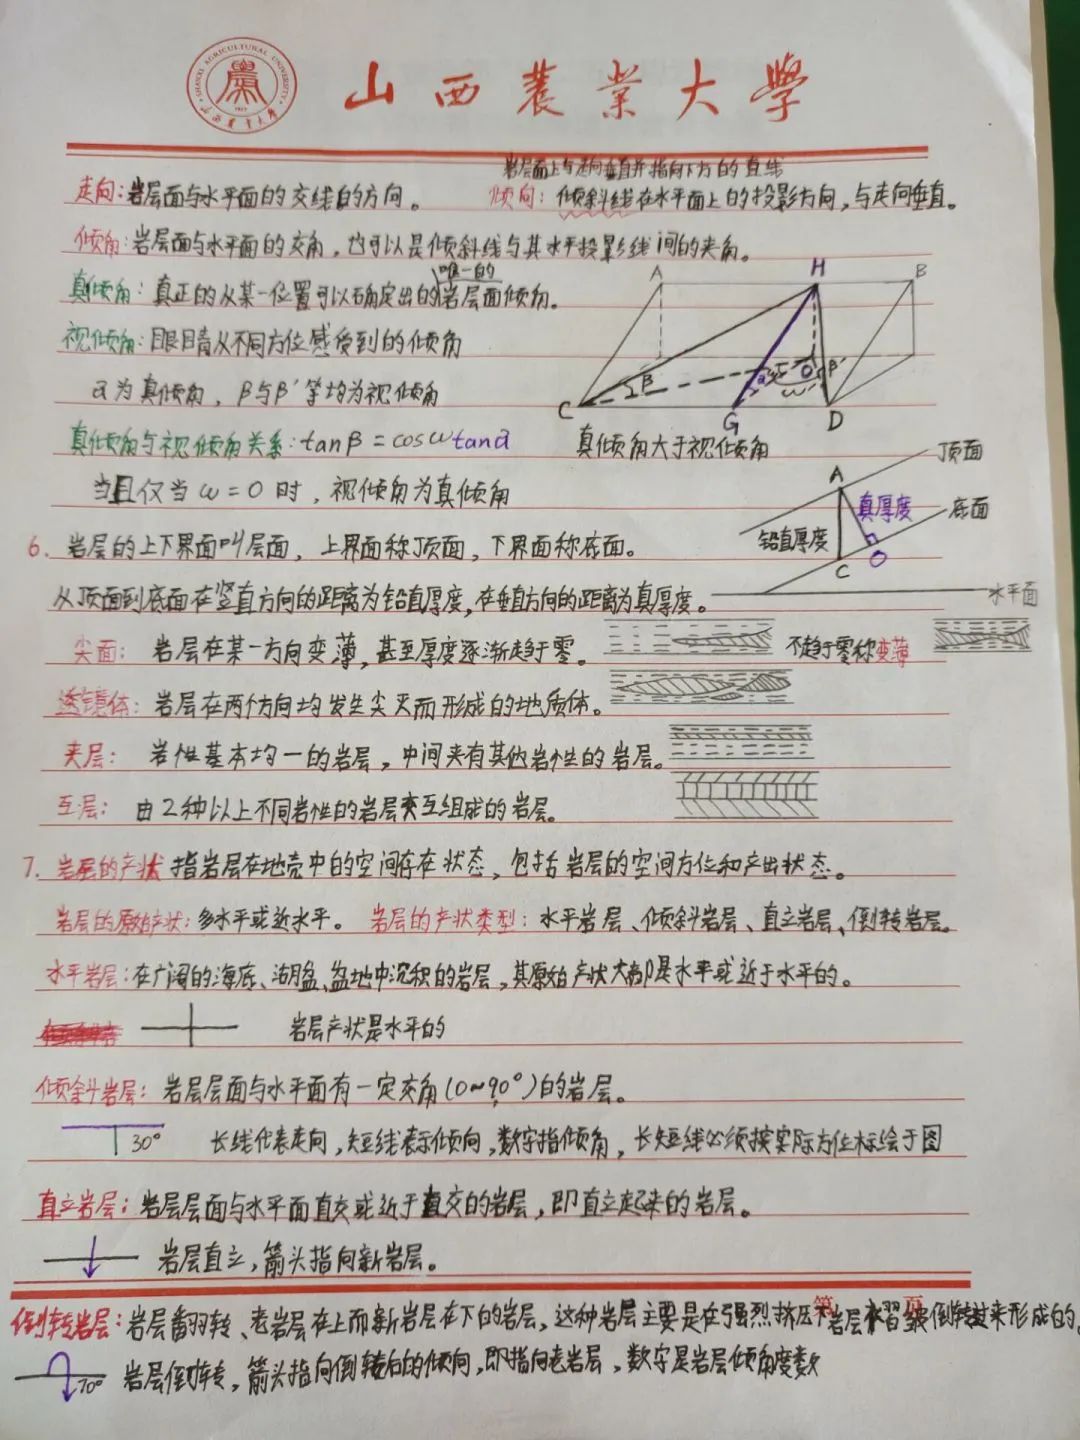 SHANXI AGRICULTURAL UNIVERSITY
山西农业大学
1907
山西農業大學
岩层面上与走向垂直并指向下方的直线
走向：岩层面与水平面的交线的方向。 倾向：倾斜线在水平面上的投影方向，与走向垂直。
倾角：岩层面与水平面的交角，也可以是倾斜线与其水平投影线间的夹角。
唯一的
真倾角：真正的从某一位置可以确定出的岩层面倾角。
视倾角：眼睛从不同方位感受到的倾角
α为真倾角，β与β′等均为视倾角
A H B
β α O β′
ω
C G D
真倾角与视倾角关系：tanβ=cosωtanα 真倾角大于视倾角
当且仅当ω=0时，视倾角为真倾角
顶面
A
真厚度 底面
铅直厚度
C O
水平面
6. 岩层的上下界面叫层面，上界面称顶面，下界面称底面。
从顶面到底面在竖直方向的距离为铅直厚度，在垂直方向的距离为真厚度。
尖面：岩层在某一方向变薄，甚至厚度逐渐趋于零。 不趋于零称变薄
透镜体：岩层在两个方向均发生尖灭而形成的地质体。
夹层：岩性基本均一的岩层，中间夹有其他岩性的岩层。
互层：由2种以上不同岩性的岩层交互组成的岩层。
7. 岩层的产状 指岩层在地壳中的空间存在状态，包括岩层的空间方位和产出状态。
岩层的原始产状：多水平或近水平。 岩层的产状类型：水平岩层、倾斜岩层、直立岩层、倒转岩层。
水平岩层：在广阔的海底、湖盆、盆地中沉积的岩层，其原始产状大部是水平或近于水平的。
岩层产状是水平的
倾斜岩层：岩层层面与水平面有一定交角（0~90°）的岩层。
30° 长线代表走向，短线表示倾向，数字指倾角，长短线必须按实际方位标绘于图
直立岩层：岩层层面与水平面直交或近于直交的岩层，即直立起来的岩层。
岩层直立，箭头指向新岩层。
第 页
倒转岩层：岩层翻转、老岩层在上而新岩层在下的岩层，这种岩层主要是在强烈挤压下岩层褶皱倒转过来形成的。
70° 岩层倒转，箭头指向倒转后的倾向，即指向老岩层，数字是岩层倾角度数